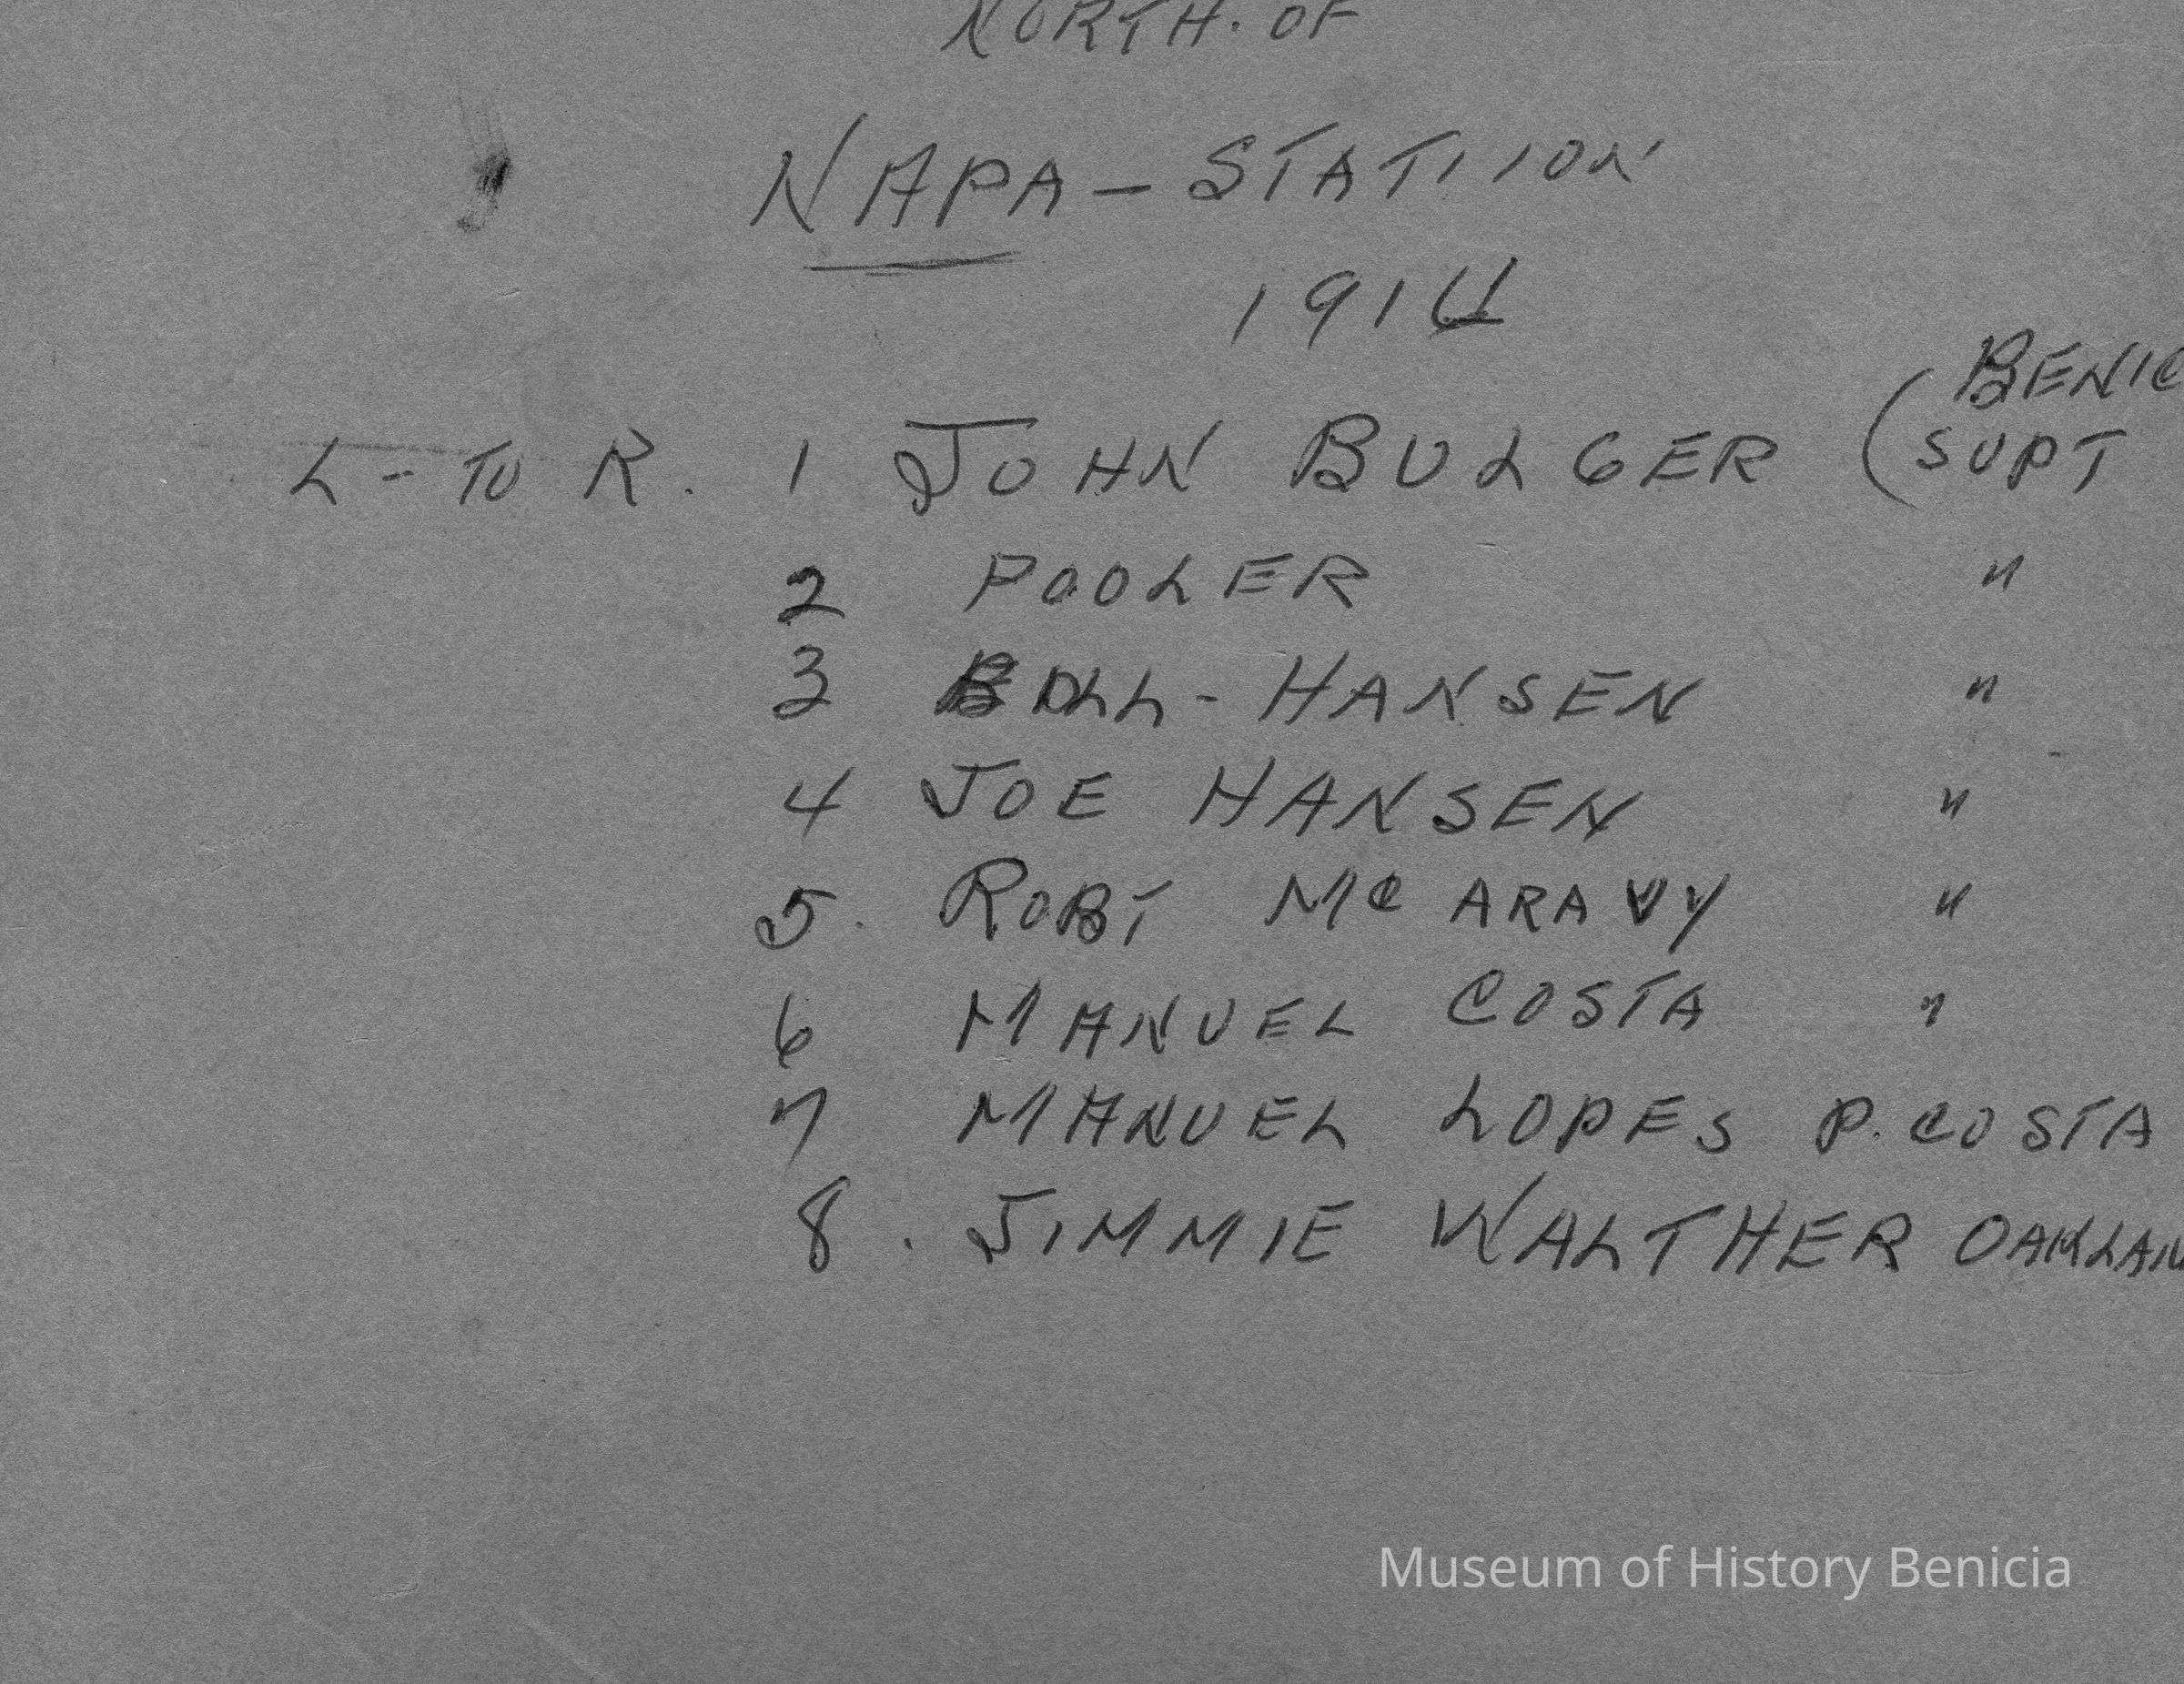 NORTH. OF
NAPA - STATIION
1914
BENIC
L - TO R. 1 JOHN BULGER (SUPT
2 POOLER "
3 BILL - HANSEN "
4 JOE HANSEN "
5. ROBT MC ARAVY "
6 MANUEL COSTA "
7 MANUEL LOPES P. COSTA
8. JIMMIE WALTHER OAKLAN
Museum of History Benicia